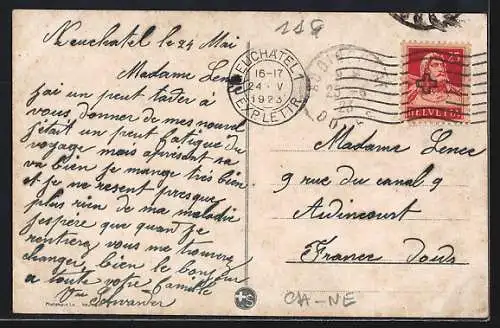 118
Neuchatel le 24 Mai
Madame Lenee
j'ai un peut tarder à
vous donner de mes nouvel
j'était un peut fatigue du
voyage mais apresent sa
va bien je mange très bien
et je ne resent presque
plus rien de ma maladie
j'espére que quand je
rentrerai vous me trouverez
changer bien le bonjour
a toute votre famille
NEUCHÂTEL 1
16-17
24 · V
1923
EXP. LETTR.
HELVETIA
Madame Lenee
9 rue du canal 9
Audincourt
France Doubs
CH-NE